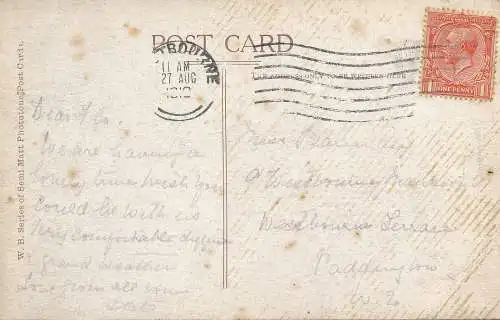 POST CARD
TBOURNE
11 AM
27 AUG
THE ADDRESS ONLY TO BE WRITTEN HERE
ONE PENNY
W. B. Series of Semi Matt Phototone Post Cards.
We are having a
lovely time wish you
could be with us
Very comfortable
& grand weather
Love from all
Miss
9 Westbourne
Westbourne Terrace
Paddington
W. 2